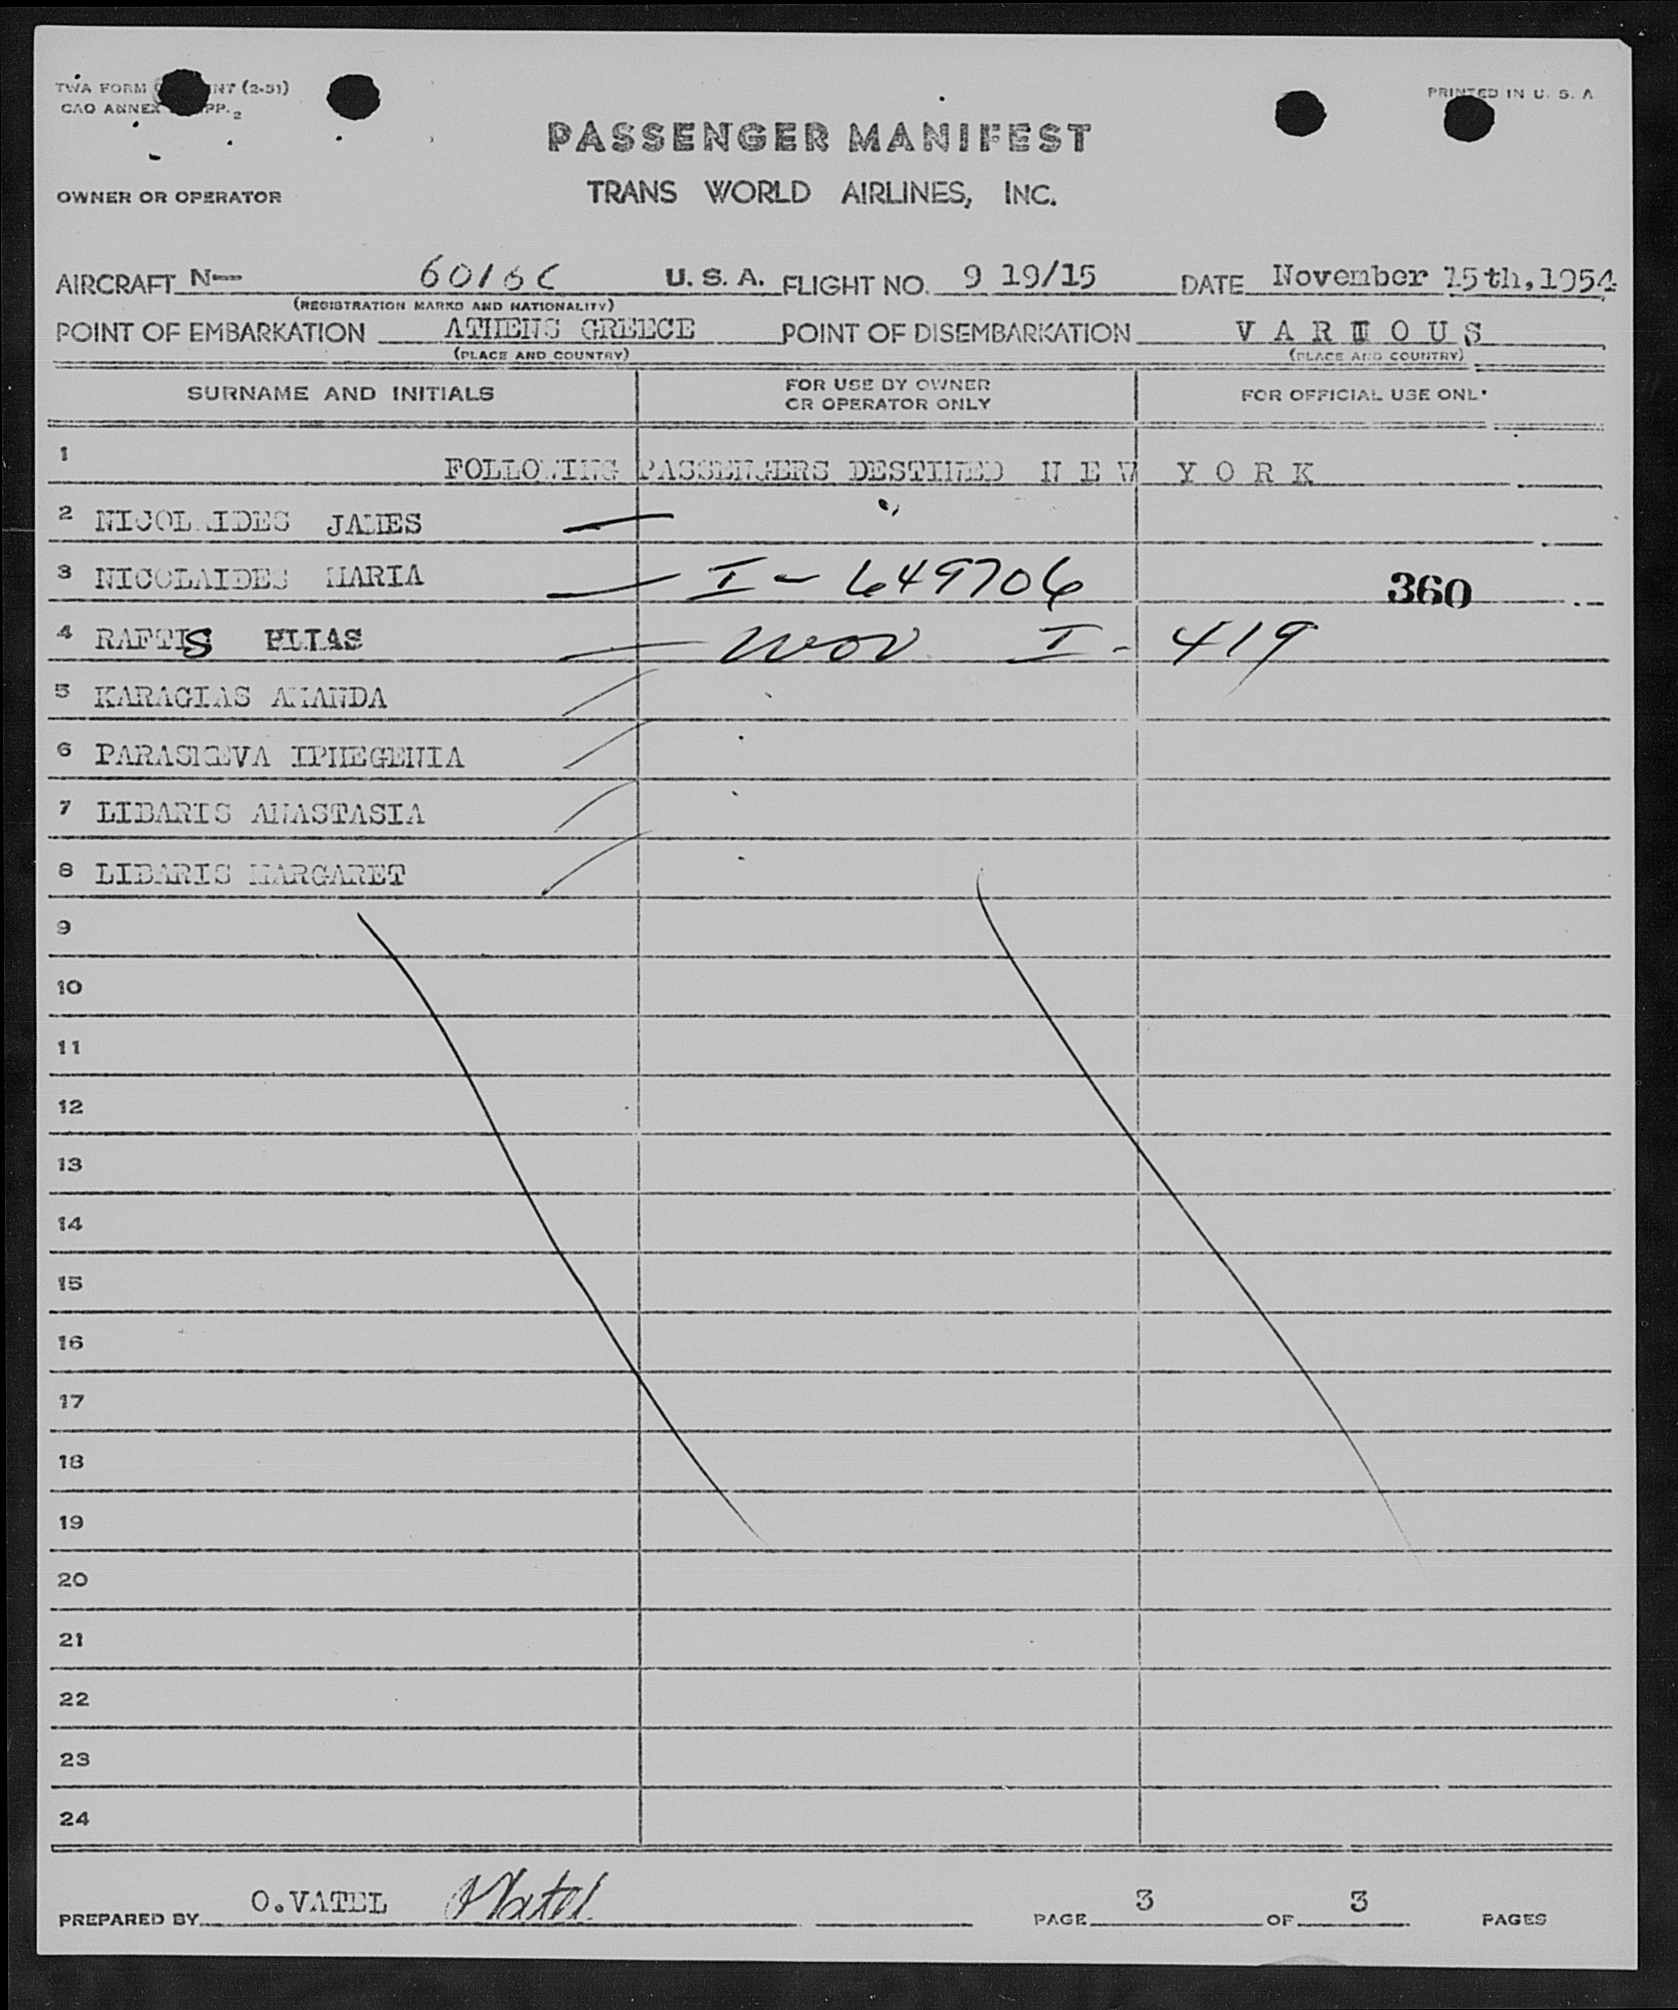 TWA FORM NT (2-51)
CAO ANNEX PP. 2
PRINTED IN U. S. A
PASSENGER MANIFEST
OWNER OR OPERATOR TRANS WORLD AIRLINES, INC.
AIRCRAFT N— 6016C U. S. A. FLIGHT NO. 9 19/15 DATE November 15th, 1954
(REGISTRATION MARKS AND NATIONALITY)
POINT OF EMBARKATION ATHENS GREECE POINT OF DISEMBARKATION V A R I O U S
(PLACE AND COUNTRY) (PLACE AND COUNTRY)
SURNAME AND INITIALS FOR USE BY OWNER OR OPERATOR ONLY FOR OFFICIAL USE ONL
1 FOLLOWING PASSENGERS DESTINED N E W Y O R K
2 NICOLAIDES JAMES
3 NICOLAIDES MARIA — I - 649706 360
4 RAFTIS ELIAS — WOV I - 419
5 KARAGIAS AMANDA
6 PARASKEVA IPHEGENIA
7 LIBARIS ANASTASIA
8 LIBARIS MARGARET
9
10
11
12
13
14
15
16
17
18
19
20
21
22
23
24
PREPARED BY O.VATEL OVatel PAGE 3 OF 3 PAGES